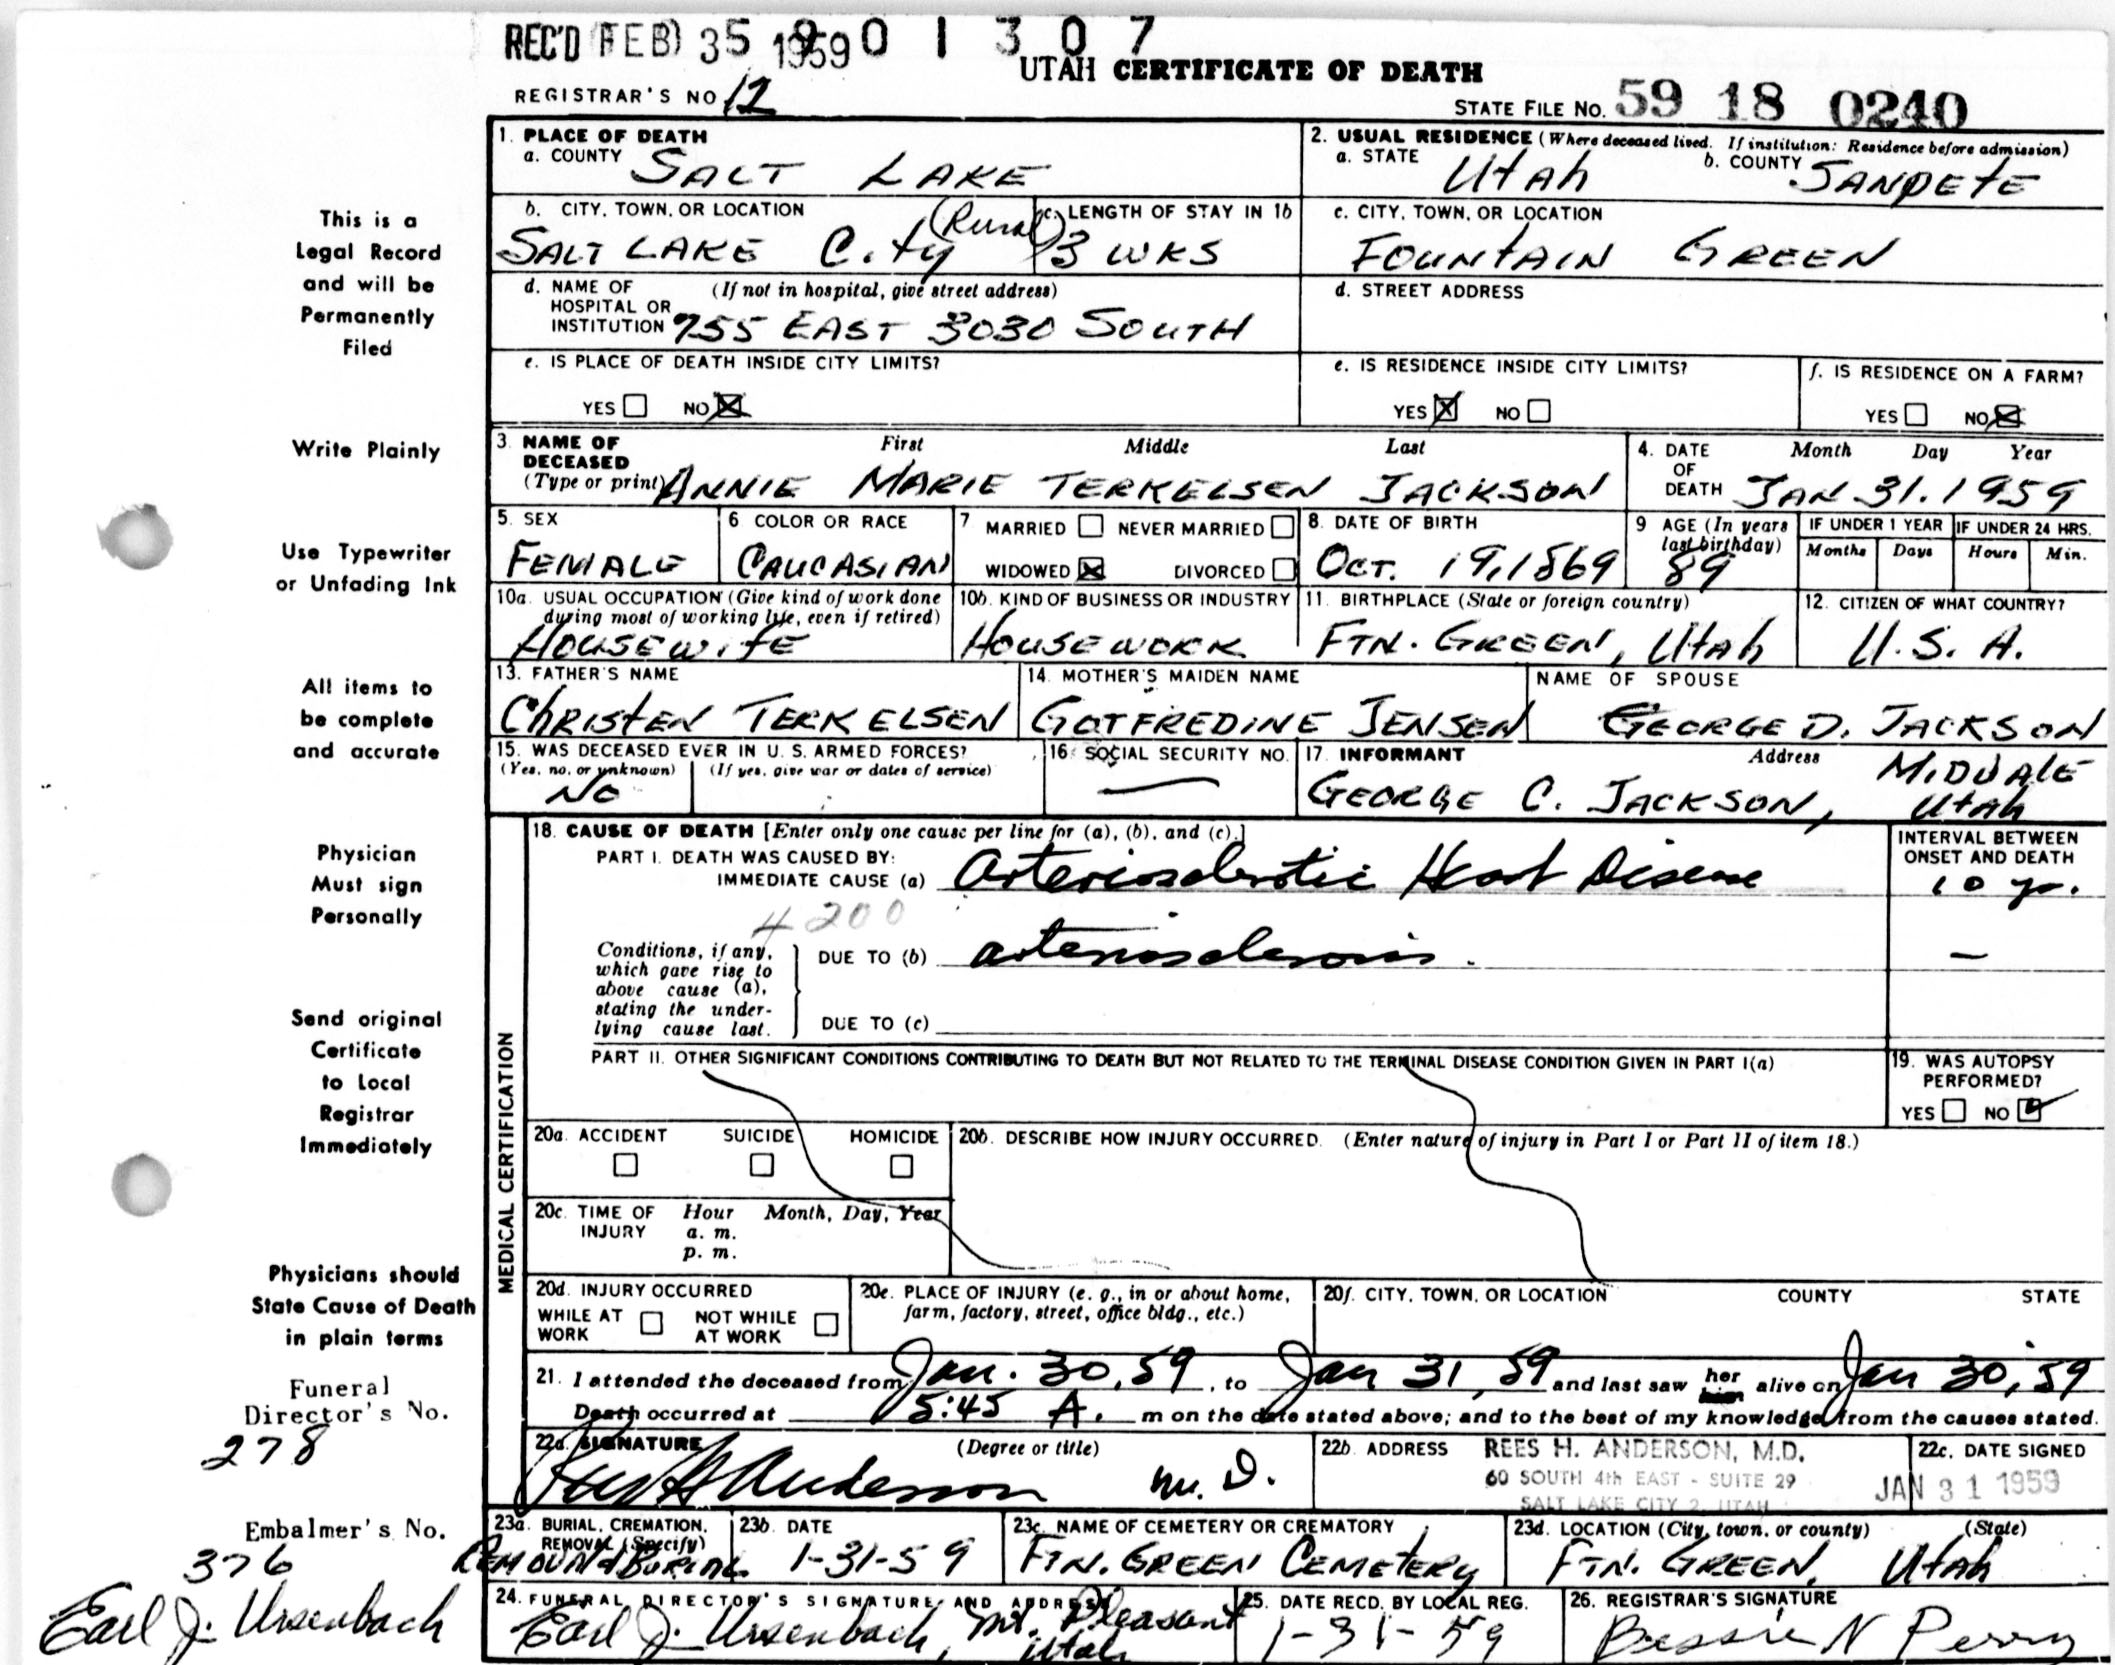 REC'D FEB 3 1959 5901307
UTAH CERTIFICATE OF DEATH
REGISTRAR'S NO 12
STATE FILE NO. 59 18 0240
1. PLACE OF DEATH
a. COUNTY SALT LAKE
2. USUAL RESIDENCE (Where deceased lived. If institution: Residence before admission)
a. STATE Utah b. COUNTY SANPETE
b. CITY, TOWN, OR LOCATION
SALT LAKE City (Rural)
c. LENGTH OF STAY IN 1b
3 WKS
c. CITY, TOWN, OR LOCATION
FOUNTAIN GREEN
d. NAME OF HOSPITAL OR INSTITUTION (If not in hospital, give street address)
755 EAST 3030 SOUTH
d. STREET ADDRESS
e. IS PLACE OF DEATH INSIDE CITY LIMITS?
YES NO X
e. IS RESIDENCE INSIDE CITY LIMITS?
YES X NO
f. IS RESIDENCE ON A FARM?
YES NO X
3. NAME OF DECEASED (Type or print) First Middle Last
ANNIE MARIE TERKELSEN JACKSON
4. DATE OF DEATH Month Day Year
JAN 31. 1959
5. SEX
FEMALE
6 COLOR OR RACE
CAUCASIAN
7 MARRIED NEVER MARRIED
WIDOWED X DIVORCED
8. DATE OF BIRTH
OCT. 19, 1869
9 AGE (In years last birthday)
89
IF UNDER 1 YEAR
Months Days
IF UNDER 24 HRS.
Hours Min.
10a. USUAL OCCUPATION (Give kind of work done during most of working life, even if retired)
HOUSEWIFE
10b. KIND OF BUSINESS OR INDUSTRY
HOUSEWORK
11. BIRTHPLACE (State or foreign country)
FTN. GREEN, Utah
12. CITIZEN OF WHAT COUNTRY?
U.S.A.
13. FATHER'S NAME
CHRISTEN TERKELSEN
14. MOTHER'S MAIDEN NAME
GOTFREDINE JENSEN
NAME OF SPOUSE
GEORGE D. JACKSON
15. WAS DECEASED EVER IN U. S. ARMED FORCES?
(Yes, no, or unknown) (If yes, give war or dates of service)
NO
16. SOCIAL SECURITY NO.
—
17. INFORMANT Address
GEORGE C. JACKSON, MIDVALE Utah
MEDICAL CERTIFICATION
18. CAUSE OF DEATH [Enter only one cause per line for (a), (b), and (c).]
PART I. DEATH WAS CAUSED BY:
IMMEDIATE CAUSE (a) Arteriosclerotic Heart Disease
INTERVAL BETWEEN ONSET AND DEATH
10 yr.
4200
Conditions, if any, which gave rise to above cause (a), stating the underlying cause last.
DUE TO (b) arteriosclerosis. —
DUE TO (c)
PART II. OTHER SIGNIFICANT CONDITIONS CONTRIBUTING TO DEATH BUT NOT RELATED TO THE TERMINAL DISEASE CONDITION GIVEN IN PART I(a)
19. WAS AUTOPSY PERFORMED?
YES NO ✓
20a. ACCIDENT SUICIDE HOMICIDE
20b. DESCRIBE HOW INJURY OCCURRED. (Enter nature of injury in Part I or Part II of item 18.)
20c. TIME OF INJURY Hour Month, Day, Year
a. m.
p. m.
20d. INJURY OCCURRED
WHILE AT WORK NOT WHILE AT WORK
20e. PLACE OF INJURY (e. g., in or about home, farm, factory, street, office bldg., etc.)
20f. CITY, TOWN, OR LOCATION COUNTY STATE
21. I attended the deceased from Jan. 30, 59, to Jan 31, 59 and last saw her him alive on Jan 30, 59
Death occurred at 5:45 A. m on the date stated above; and to the best of my knowledge, from the causes stated.
22a. SIGNATURE (Degree or title)
Rees H Anderson M.D.
22b. ADDRESS
REES H. ANDERSON, M.D.
60 SOUTH 4th EAST - SUITE 29
SALT LAKE CITY 2, UTAH
22c. DATE SIGNED
JAN 31 1959
23a. BURIAL, CREMATION, REMOVAL (Specify)
REMOVAL & BURIAL
23b. DATE
1-31-59
23c. NAME OF CEMETERY OR CREMATORY
FTN. GREEN CEMETERY
23d. LOCATION (City, town, or county) (State)
FTN. GREEN, Utah
24. FUNERAL DIRECTOR'S SIGNATURE AND ADDRESS
Earl J. Ursenbach, Mt. Pleasant Utah
25. DATE RECD. BY LOCAL REG.
1-31-59
26. REGISTRAR'S SIGNATURE
Bessie N Perry
This is a
Legal Record
and will be
Permanently
Filed
Write Plainly
Use Typewriter
or Unfading Ink
All items to
be complete
and accurate
Physician
Must sign
Personally
Send original
Certificate
to Local
Registrar
Immediately
Physicians should
State Cause of Death
in plain terms
Funeral
Director's No.
278
Embalmer's No.
376
Earl J. Ursenbach